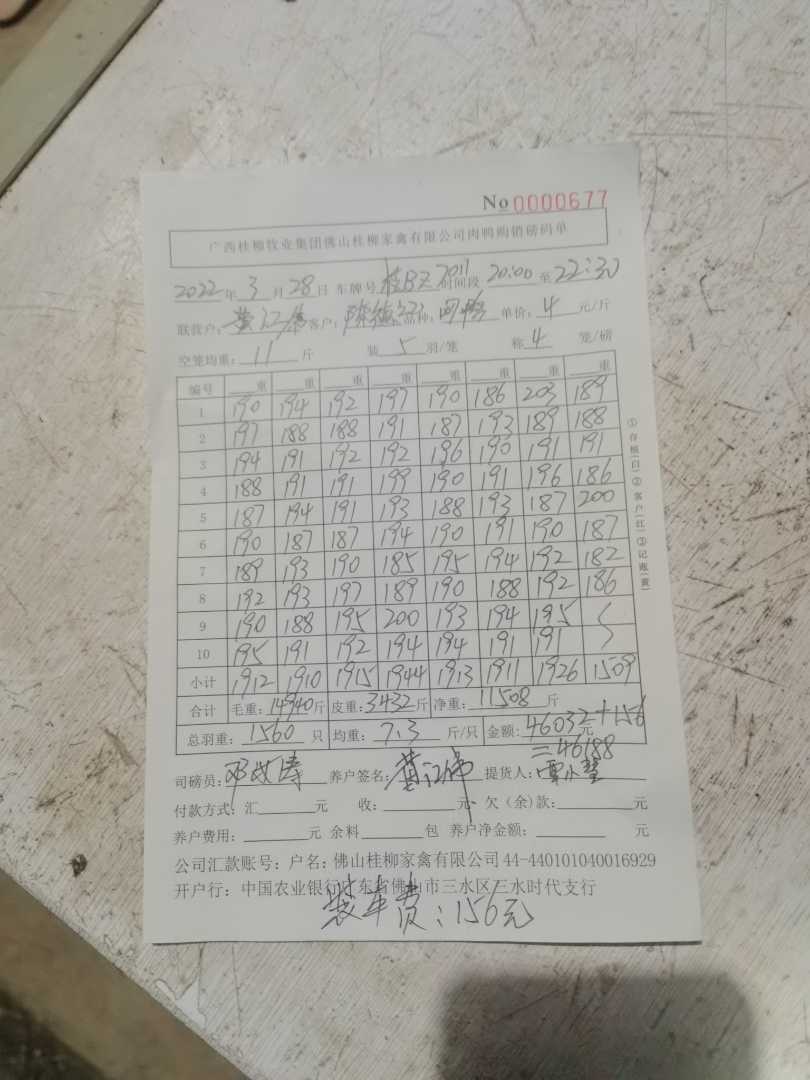 No 0000677
广西桂柳牧业集团佛山桂柳家禽有限公司肉鸭购销磅码单
2022年 3月 28日 车牌号 桂BZ7011 时间段 20:00 至 22:30
联营户: 客户: 陈德 品种: 单价: 4 元/斤
空笼均重: 11 斤 装 5 羽/笼 称 4 笼/磅
编号 重 重 重 重 重 重 重 重
1 190 194 192 197 190 186 203 189
2 197 188 188 191 187 193 189 188
3 194 191 192 192 196 190 191 191
4 188 191 191 199 190 191 196 186
5 187 194 191 193 188 193 187 200
6 190 187 187 194 190 191 190 187
7 189 193 190 185 195 194 192 182
8 192 193 197 189 190 188 192 186
9 190 188 195 200 193 194 195
10 195 191 192 194 194 191 191
小计 1912 1910 1915 1944 1913 1911 1926 1509
合计 毛重: 14940 斤 皮重: 3432 斤 净重: 11508 斤
总羽重: 1560 只 均重: 7.3 斤/只 金额: 46032+156 元
=46188
司磅员: 邓 涛 养户签名: 黄 提货人: 覃小
付款方式: 汇 元 收: 元 欠(余)款: 元
养户费用: 元 余料 包 养户净金额: 元
公司汇款账号: 户名: 佛山桂柳家禽有限公司 44-440101040016929
开户行: 中国农业银行广东省佛山市三水区三水时代支行
装车费: 156元
①存根(白)②客户(红)③记账(黄)